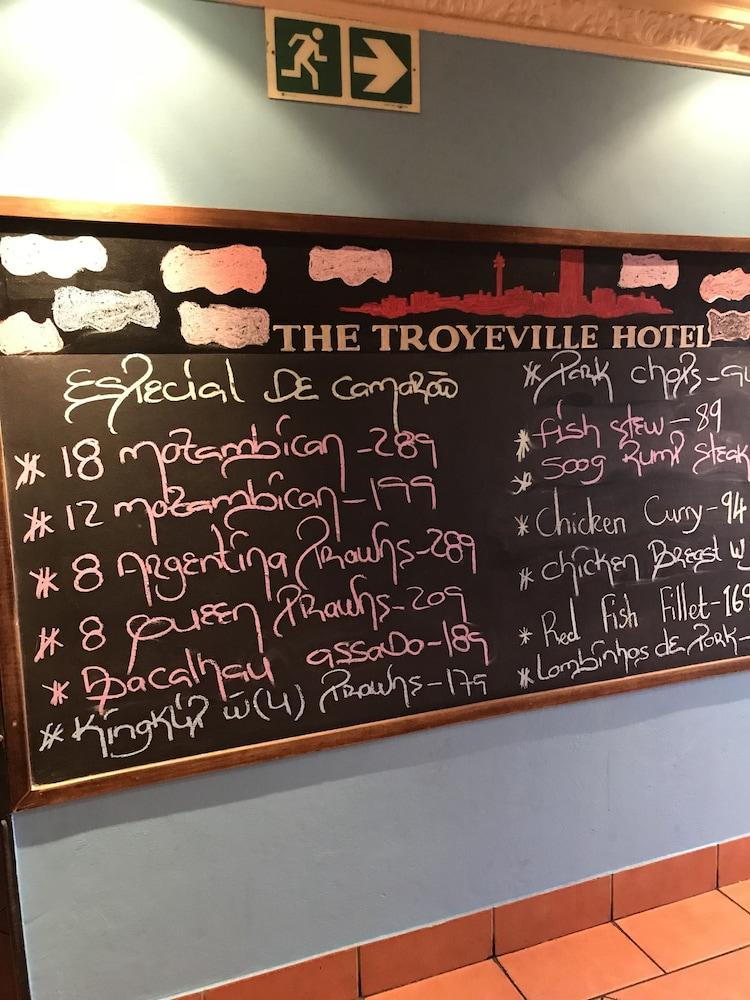 THE TROYEVILLE HOTEL
Especial De camarão
* 18 mozambican - 289
* 12 mozambican - 199
* 8 Argentina Prawns - 289
* 8 Queen Prawns - 209
* Bacalhau assado - 189
* Kingklip w (4) Prawns - 179
* Pork chops -
* fish stew - 89
* 500g Rump Steak
* Chicken Curry - 94
* chicken Breast w
* Red Fish Fillet - 169
* Lombinhos de Pork -